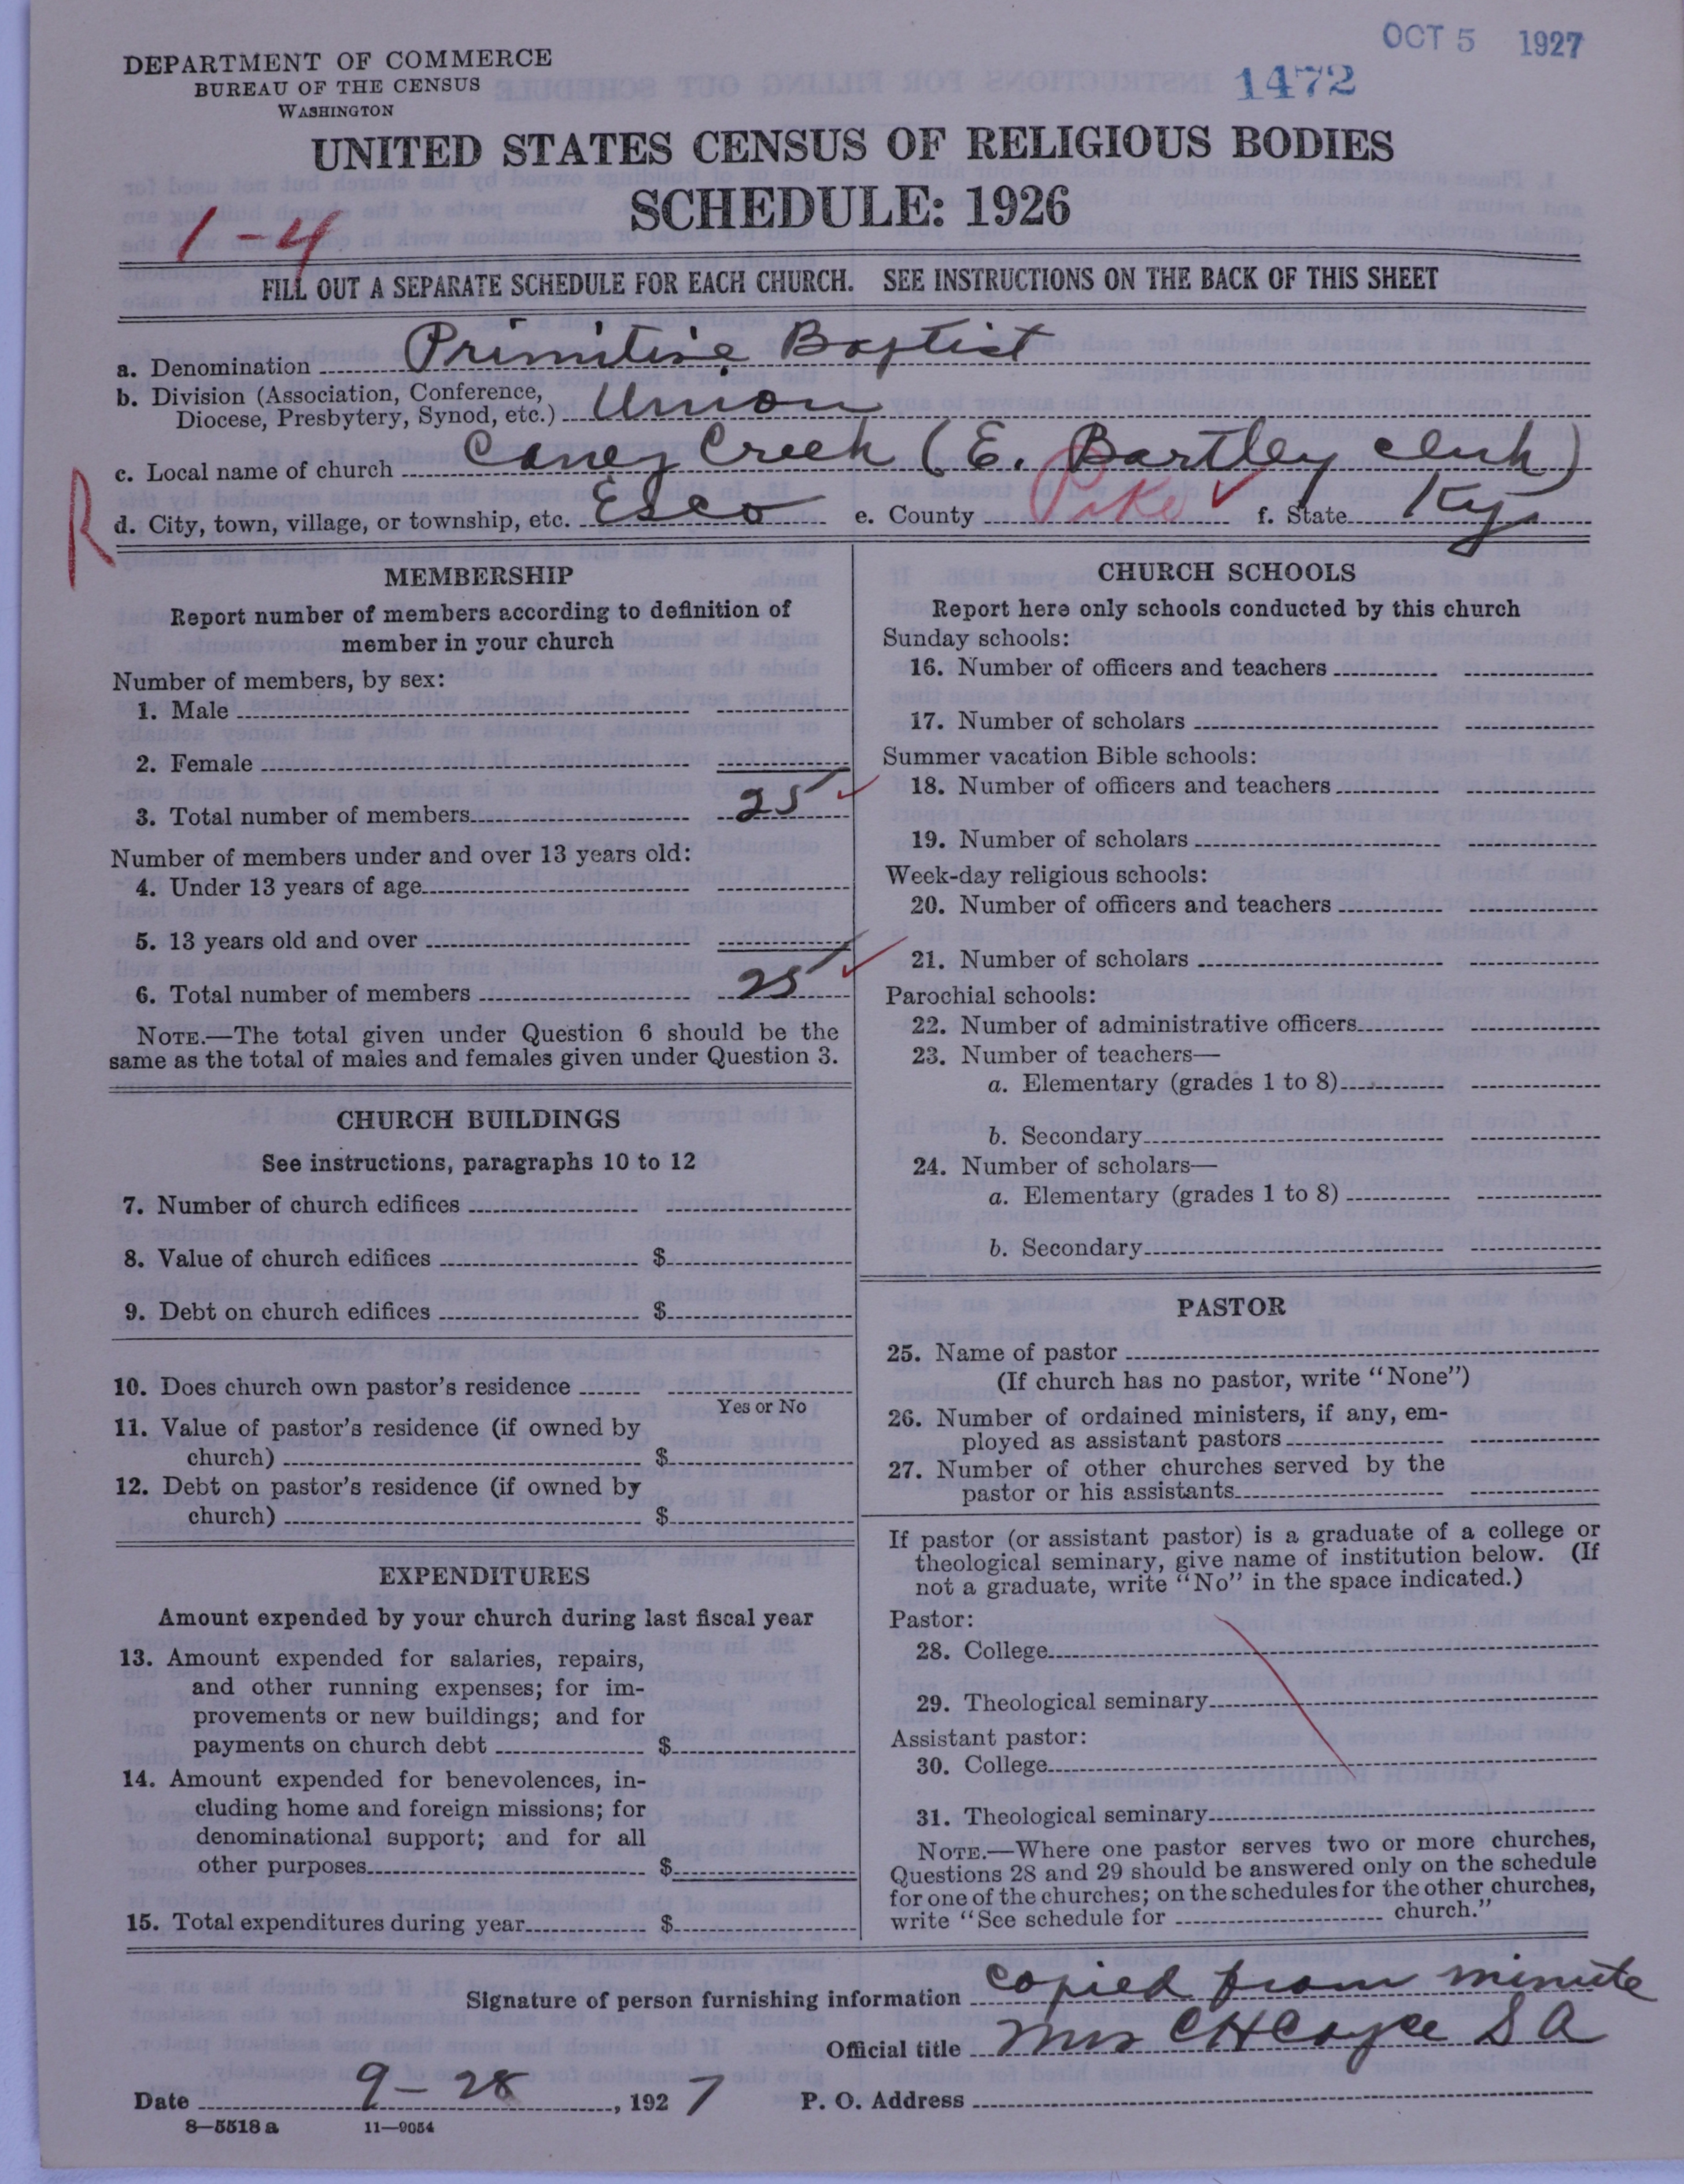 OCT 5 1927
1472
DEPARTMENT OF COMMERCE
BUREAU OF THE CENSUS
WASHINGTON
UNITED STATES CENSUS OF RELIGIOUS BODIES
SCHEDULE: 1926
1-4
FILL OUT A SEPARATE SCHEDULE FOR EACH CHURCH. SEE INSTRUCTIONS ON THE BACK OF THIS SHEET
a. Denomination Primitive Baptist
b. Division (Association, Conference,
Diocese, Presbytery, Synod, etc.) Union
c. Local name of church Caney Creek (E. Bartley clerk)
R
d. City, town, village, or township, etc. Esco e. County Pike f. State Ky
MEMBERSHIP
Report number of members according to definition of
member in your church
Number of members, by sex:
1. Male
2. Female
3. Total number of members 25
Number of members under and over 13 years old:
4. Under 13 years of age
5. 13 years old and over
6. Total number of members 25
NOTE.—The total given under Question 6 should be the
same as the total of males and females given under Question 3.
CHURCH BUILDINGS
See instructions, paragraphs 10 to 12
7. Number of church edifices
8. Value of church edifices $
9. Debt on church edifices $
10. Does church own pastor's residence
Yes or No
11. Value of pastor's residence (if owned by
church) $
12. Debt on pastor's residence (if owned by
church) $
EXPENDITURES
Amount expended by your church during last fiscal year
13. Amount expended for salaries, repairs,
and other running expenses; for im-
provements or new buildings; and for
payments on church debt $
14. Amount expended for benevolences, in-
cluding home and foreign missions; for
denominational support; and for all
other purposes $
15. Total expenditures during year $
CHURCH SCHOOLS
Report here only schools conducted by this church
Sunday schools:
16. Number of officers and teachers
17. Number of scholars
Summer vacation Bible schools:
18. Number of officers and teachers
19. Number of scholars
Week-day religious schools:
20. Number of officers and teachers
21. Number of scholars
Parochial schools:
22. Number of administrative officers
23. Number of teachers—
a. Elementary (grades 1 to 8)
b. Secondary
24. Number of scholars—
a. Elementary (grades 1 to 8)
b. Secondary
PASTOR
25. Name of pastor
(If church has no pastor, write "None")
26. Number of ordained ministers, if any, em-
ployed as assistant pastors
27. Number of other churches served by the
pastor or his assistants
If pastor (or assistant pastor) is a graduate of a college or
theological seminary, give name of institution below. (If
not a graduate, write "No" in the space indicated.)
Pastor:
28. College
29. Theological seminary
Assistant pastor:
30. College
31. Theological seminary
NOTE.—Where one pastor serves two or more churches,
Questions 28 and 29 should be answered only on the schedule
for one of the churches; on the schedules for the other churches,
write "See schedule for church."
Signature of person furnishing information copied from minute
Official title Mrs C H Cayce S A
Date 9-28, 1927 P. O. Address
8—5518 a 11—9054